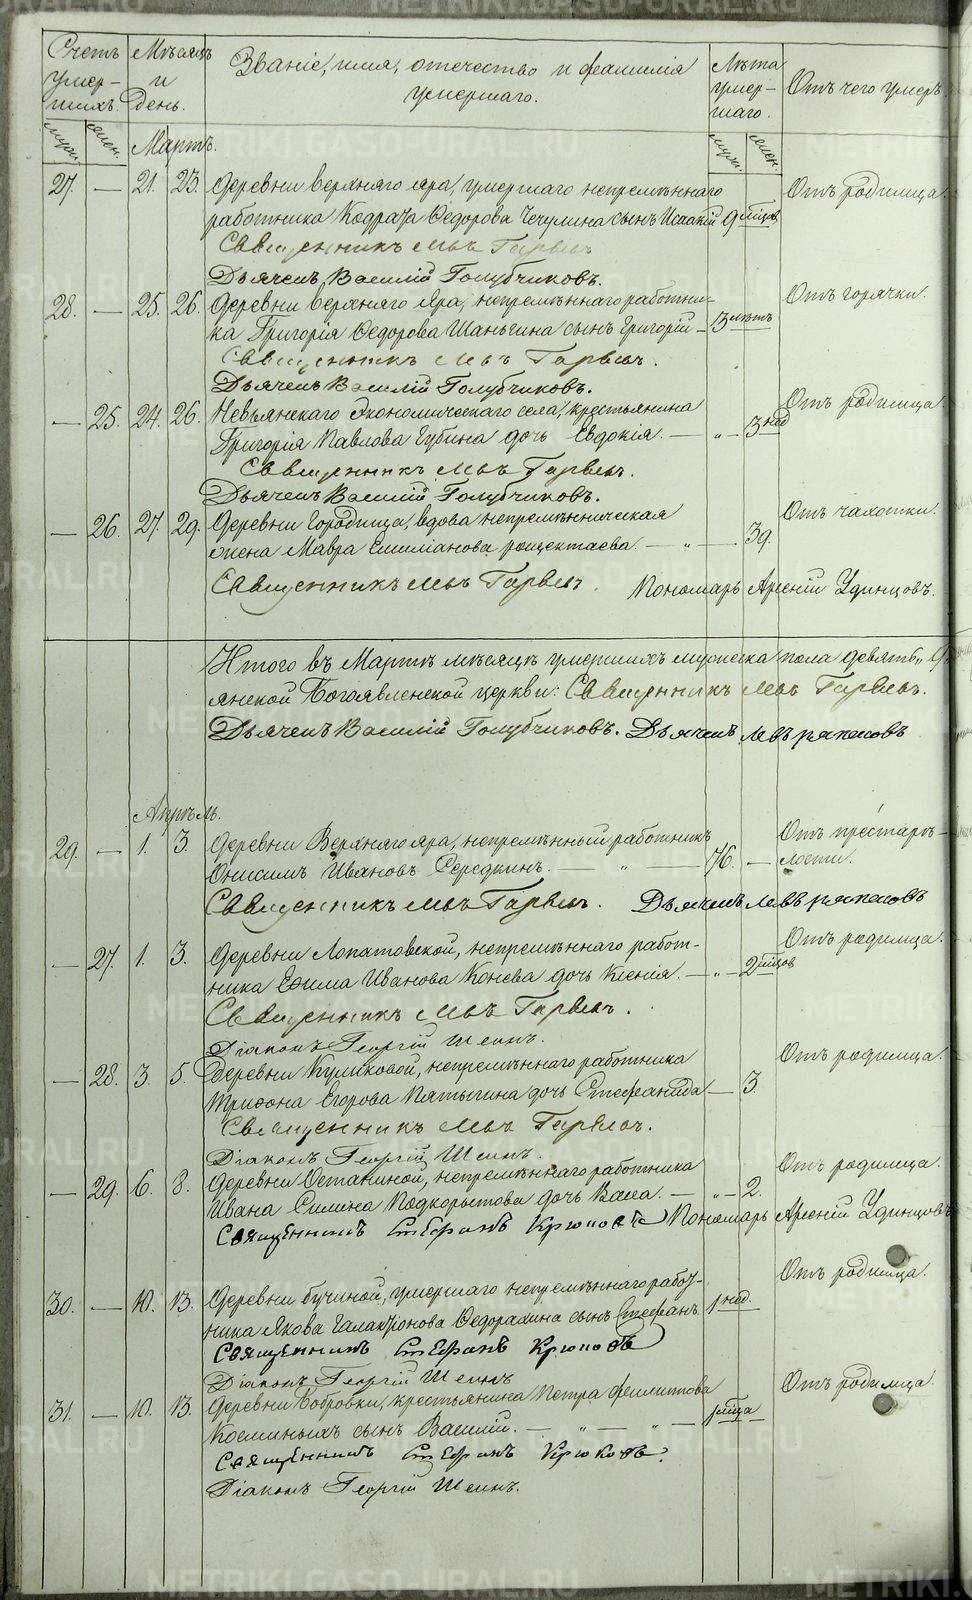 Счетъ умер- шихъ.
Мѣсяцъ и день.
Званіе, имя, отчество и фамилія умершаго.
Лѣта умер- шаго.
Отъ чего умеръ
муж. жен.
Мартъ.
муж. жен.
27. — 21. 23. Деревни верхняго яра, умершаго непремѣннаго Отъ родимца.
работника Кодрата Ѳедорова Чечулина сынъ Исаакій 9 мѣцов
Священникъ Левъ Гаряевъ
Дьячекъ Василій Голубчиковъ.
28. — 25. 26. Деревни верхняго Яра, непремѣннаго работни- Отъ горячки.
ка Григорія Ѳедорова Шаньгина сынъ Григорій — 3 лѣтъ
Священникъ Левъ Гаряевъ.
Дьячекъ Василій Голубчиковъ.
— 25. 24. 26. Невьянскаго Экономическаго села, крестьянина Отъ родимца
Григорія Павлова Губина дочь Евдокія. — „ — 3 нед
Священникъ Левъ Гаряевъ.
Дьячекъ Василій Голубчиковъ.
— 26. 27. 29. Деревни Городища, вдова непремѣнническая Отъ чахотки.
жена Мавра Емиліанова — „ — 39.
Священникъ Левъ Гаряевъ. Пономарь Арсеній Удинцовъ.
Итого въ Мартѣ мѣсяцѣ умершихъ мужеска пола девять „ 9
янской Богоявленской церкви: Священникъ Левъ Гаряевъ.
Дьячекъ Василій Голубчиковъ. Дьячекъ Левъ
Апрѣль.
29. — 1. 3. Деревни Верхняго яра, непремѣнный работникъ Отъ престарѣ-
Онисимъ Ивановъ Середкинъ. — „ — 76. — лости.
Священникъ Левъ Гаряевъ. Дьячекъ Левъ
— 27. 1. 3. Деревни Лопатовской, непремѣннаго работ- Отъ родимца.
ника Ефима Иванова Конева дочь Ксенія. — „ — 2 мѣцов
Священникъ Левъ Гаряевъ.
Діаконъ Георгій Шеинъ.
— 28. 3. 5. Деревни Куликовой, непремѣннаго работника Отъ родимца.
Трифона Егорова Пятыгина дочь Стефанида — 3.
Священникъ Левъ Гаряевъ.
Діаконъ Георгій Шеинъ.
— 29. 6. 8. Деревни Останиной, непремѣннаго работника Отъ родимца.
Ивана Силина Подкорытова дочь Васса. — „ — 2.
Священникъ Стефанъ Крюковъ Пономарь Арсеній Удинцовъ
30. — 10. 13. Деревни бучиной, умершаго непремѣннаго работ- Отъ родимца.
ника Якова Галактіонова Ѳедорахина сынъ Стефанъ 1 нед.
Священникъ Стефанъ Крюковъ
Діаконъ Георгій Шеинъ
31. — 10. 13. Деревни Бобровки, крестьянина Петра Филиппова Отъ родимца.
Косминыхъ сынъ Василій. — „ — „ — 1 мѣца
Священникъ Стефанъ Крюковъ.
Діаконъ Георгій Шеинъ.
METRIKI.GASO-URAL.RU